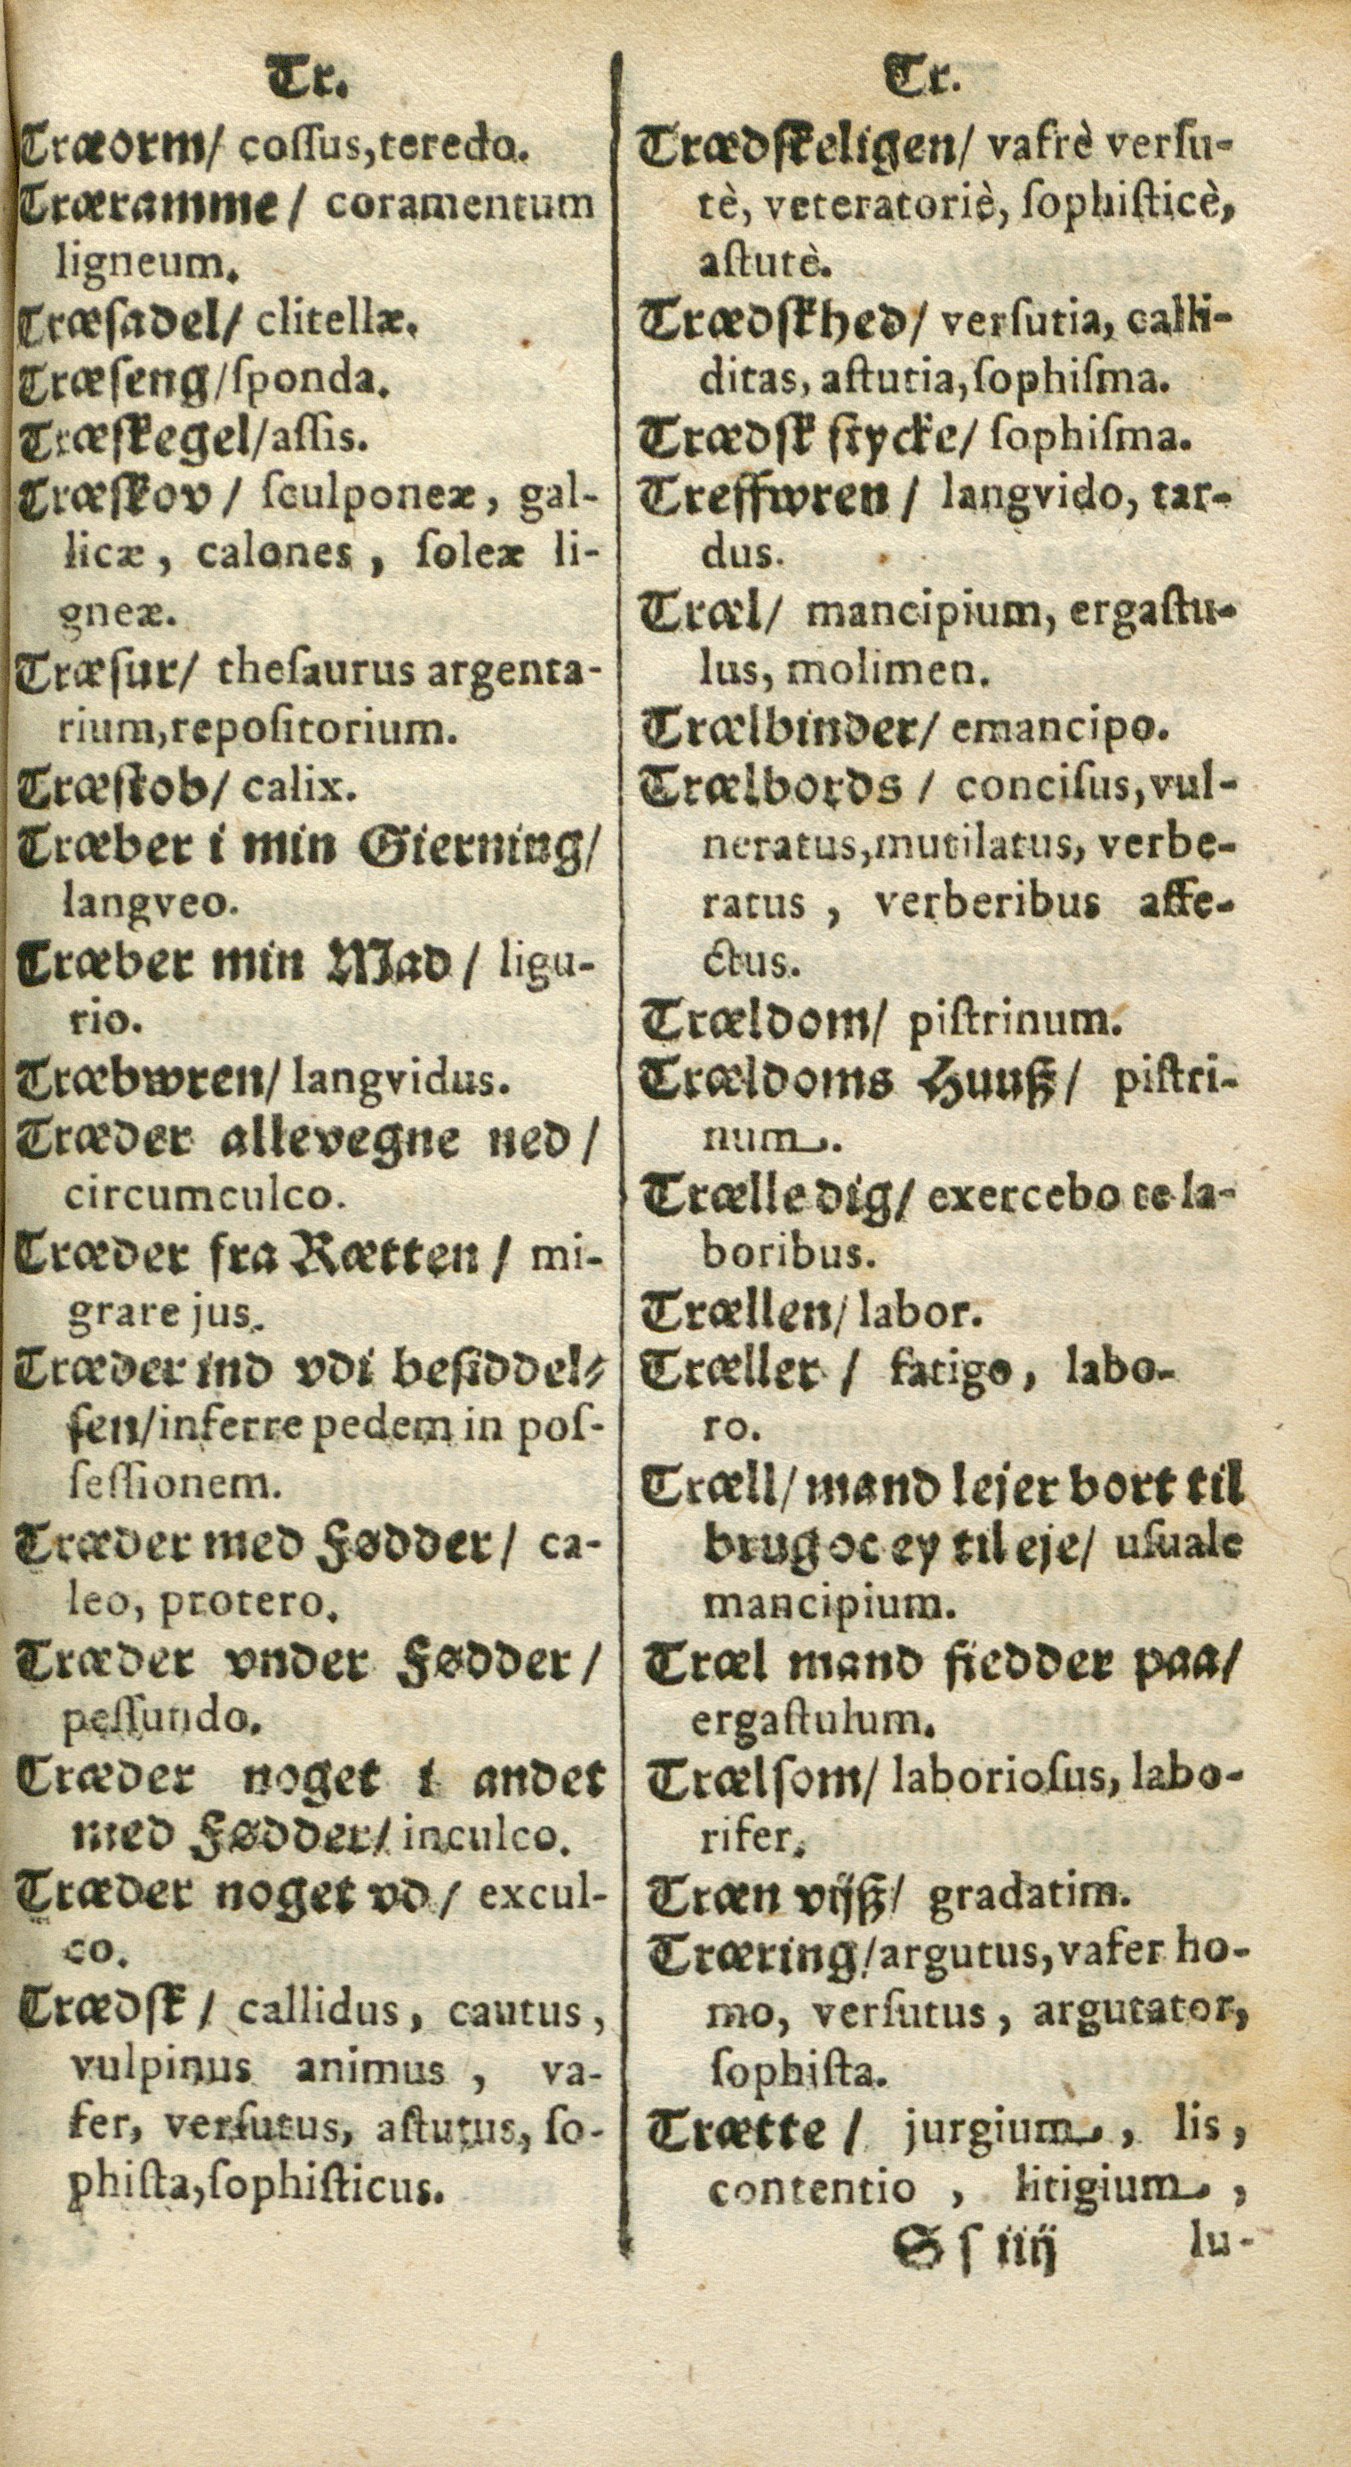 Tr.
Træorm/ coſſus, teredo.
Træramme/ coramentum
ligneum.
Træſadel/ clitellæ.
Træſeng/ſponda.
Træſkegel/aſſis.
Træſkov/ ſculponeæ, gal-
licæ, calones, ſoleæ li-
gneæ.
Træſur/ theſaurus argenta-
rium, repoſitorium.
Træſtob/ calix.
Træber i min Gierning/
langveo.
Træber min Mad/ ligu-
rio.
Træbwren/ langvidus.
Træder allevegne ned/
circumculco.
Træder fra Rætten/ mi-
grare jus.
Træder ind vdi beſiddel-
ſen/inferre pedem in poſ-
ſeſſionem.
Træder med Fødder/ ca-
leo, protero.
Træder vnder Fødder/
peſſundo.
Træder noget i andet
med Fødder/ inculco.
Træder noget vd/ excul-
co.
Trædſk/ callidus, cautus,
vulpinus animus, va-
fer, verſutus, aſtutus, ſo-
phiſta, ſophiſticus.
Tr.
Trædſkeligen/ vafrè verſu-
tè, veteratoriè, ſophiſticè,
aſtutè.
Trædſkhed/ verſutia, calli-
ditas, aſtutia, ſophiſma.
Trædſk ſtycke/ ſophiſma.
Treffwren/ langvido, tar-
dus.
Træl/ mancipium, ergaſtu-
lus, molimen.
Trælbinder/ emancipo.
Trælbords/ conciſus, vul-
neratus, mutilatus, verbe-
ratus, verberibus affe-
ctus.
Trældom/ piſtrinum.
Trældoms Huuß/ piſtri-
num.
Trælle dig/ exercebo te la-
boribus.
Trællen/ labor.
Træller/ fatigo, labo-
ro.
Træll/ mand lejer bort til
brug oc ey til eje/ uſuale
mancipium.
Træl mand ſiedder paa/
ergaſtulum.
Trælſom/ laborioſus, labo-
rifer.
Træn vijß/ gradatim.
Træring/argutus, vafer ho-
mo, verſutus, argutator,
ſophiſta.
Trætte/ jurgium, lis,
contentio, litigium,
S ſ iiij lu-